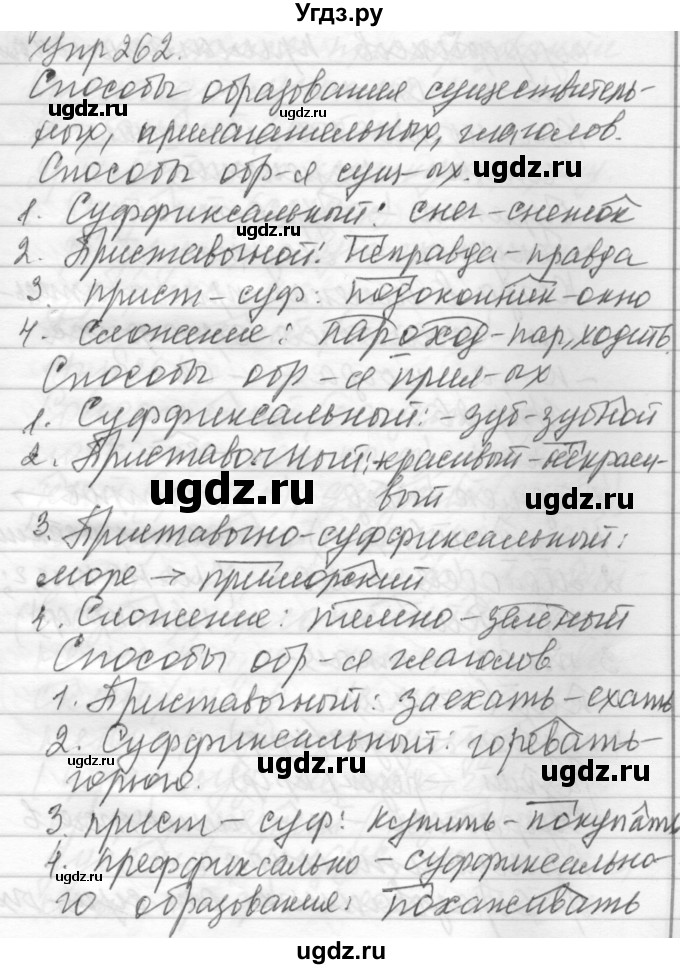 Угдз.ру
Упр 262.
Способы образования существитель-
ных, прилагательных, глаголов.
Способы обр-я сущ-ых.
1. Суффиксальный: снег-снежок
2. Приставочной: Неправда-правда
3. прист-суф: подоконник-окно
4. Сложение: пароход-пар, ходить.
Способы обр-я прил-ых
1. Суффиксальный: - зуб-зубной
2. Приставочный: красивый-некраси-
вый
3. Приставочно-суффиксальный:
море → приморский
4. Сложение: темно-зелёный
Способы обр-я глаголов
1. Приставочный: заехать-ехать
2. Суффиксальный: горевать-
3. прист-суф: купить-покупать
4. преффиксально-суффиксально-
го образования: похаживать
ugdz.ru
ugdz.ru
ugdz.ru
ugdz.ru
ugdz.ru
ugdz.ru
ugdz.ru
ugdz.ru
ugdz.ru
ugdz.ru
ugdz.ru
ugdz.ru
ugdz.ru